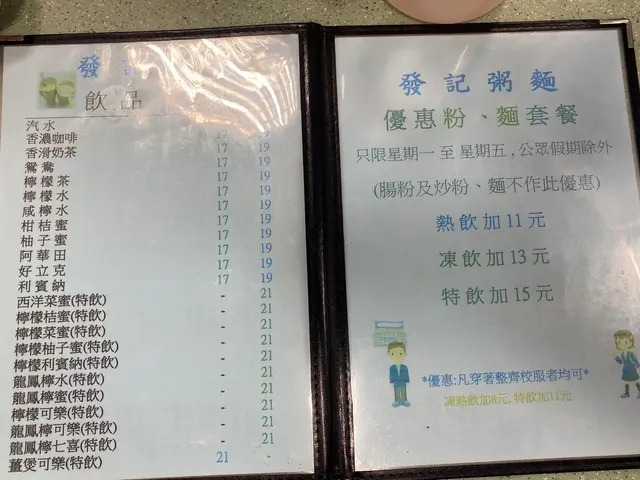 發記
飲品
汽水
香濃咖啡 17 19
香滑奶茶 17 19
鴛鴦 17 19
檸檬茶 17 19
檸檬水 17 19
咸檸水 17 19
柑桔蜜 17 19
柚子蜜 17 19
阿華田 17 19
好立克 17 19
利賓納 17 19
西洋菜蜜(特飲) - 21
檸檬桔蜜(特飲) - 21
檸檬菜蜜(特飲) - 21
檸檬柚子蜜(特飲) - 21
檸檬利賓納(特飲) - 21
龍鳳檸水(特飲) - 21
龍鳳檸蜜(特飲) - 21
檸檬可樂(特飲) - 21
龍鳳檸可樂(特飲) - 21
龍鳳檸七喜(特飲) - 21
薑煲可樂(特飲) 21 -
發記粥麵
優惠粉、麵套餐
只限星期一至星期五,公眾假期除外
(腸粉及炒粉、麵不作此優惠)
熱飲加11元
凍飲加13元
特飲加15元
*優惠:凡穿著整齊校服者均可*
凍熱飲加8元,特飲加11元